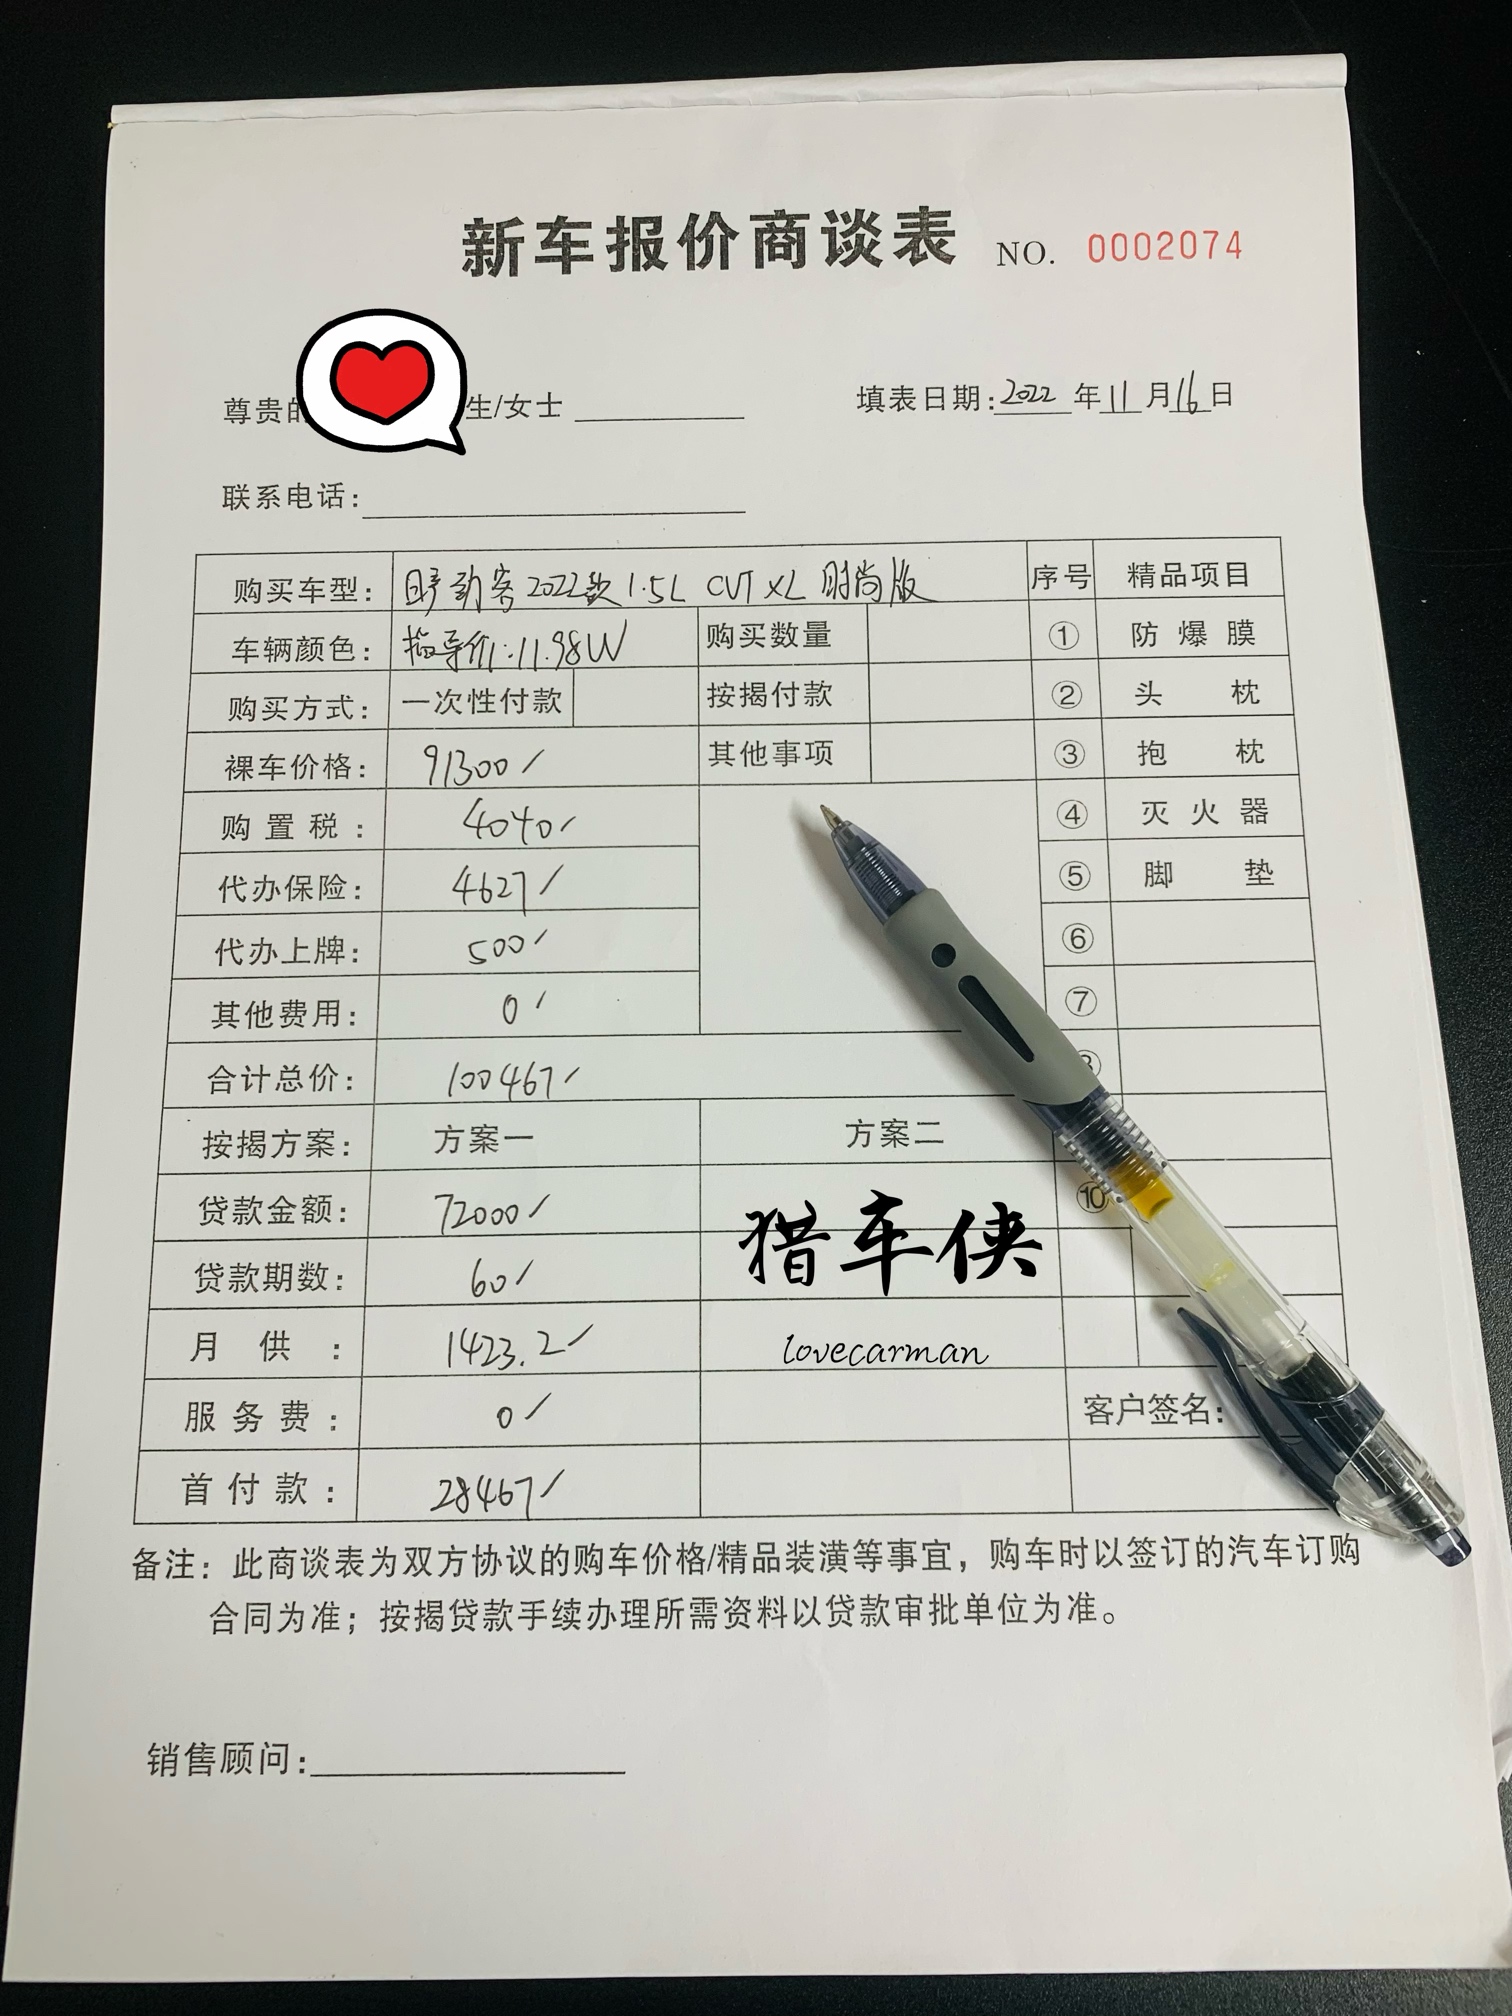 新车报价商谈表 NO. 0002074
尊贵的 生/女士 填表日期:2022年11月16日
联系电话:
购买车型: 日产劲客2022款1.5L CVT XL 时尚版 序号 精品项目
车辆颜色: 指导价:11.98W 购买数量 ① 防爆膜
购买方式: 一次性付款 按揭付款 ② 头枕
裸车价格: 91300 其他事项 ③ 抱枕
购置税: 4040 ④ 灭火器
代办保险: 4627 ⑤ 脚垫
代办上牌: 500 ⑥
其他费用: 0 ⑦
合计总价: 100467
按揭方案: 方案一 方案二
贷款金额: 72000 ⑩
猎车侠
贷款期数: 60
月供: 1423.2 lovecarman
服务费: 0 客户签名:
首付款: 28467
备注: 此商谈表为双方协议的购车价格/精品装潢等事宜，购车时以签订的汽车订购
合同为准；按揭贷款手续办理所需资料以贷款审批单位为准。
销售顾问: